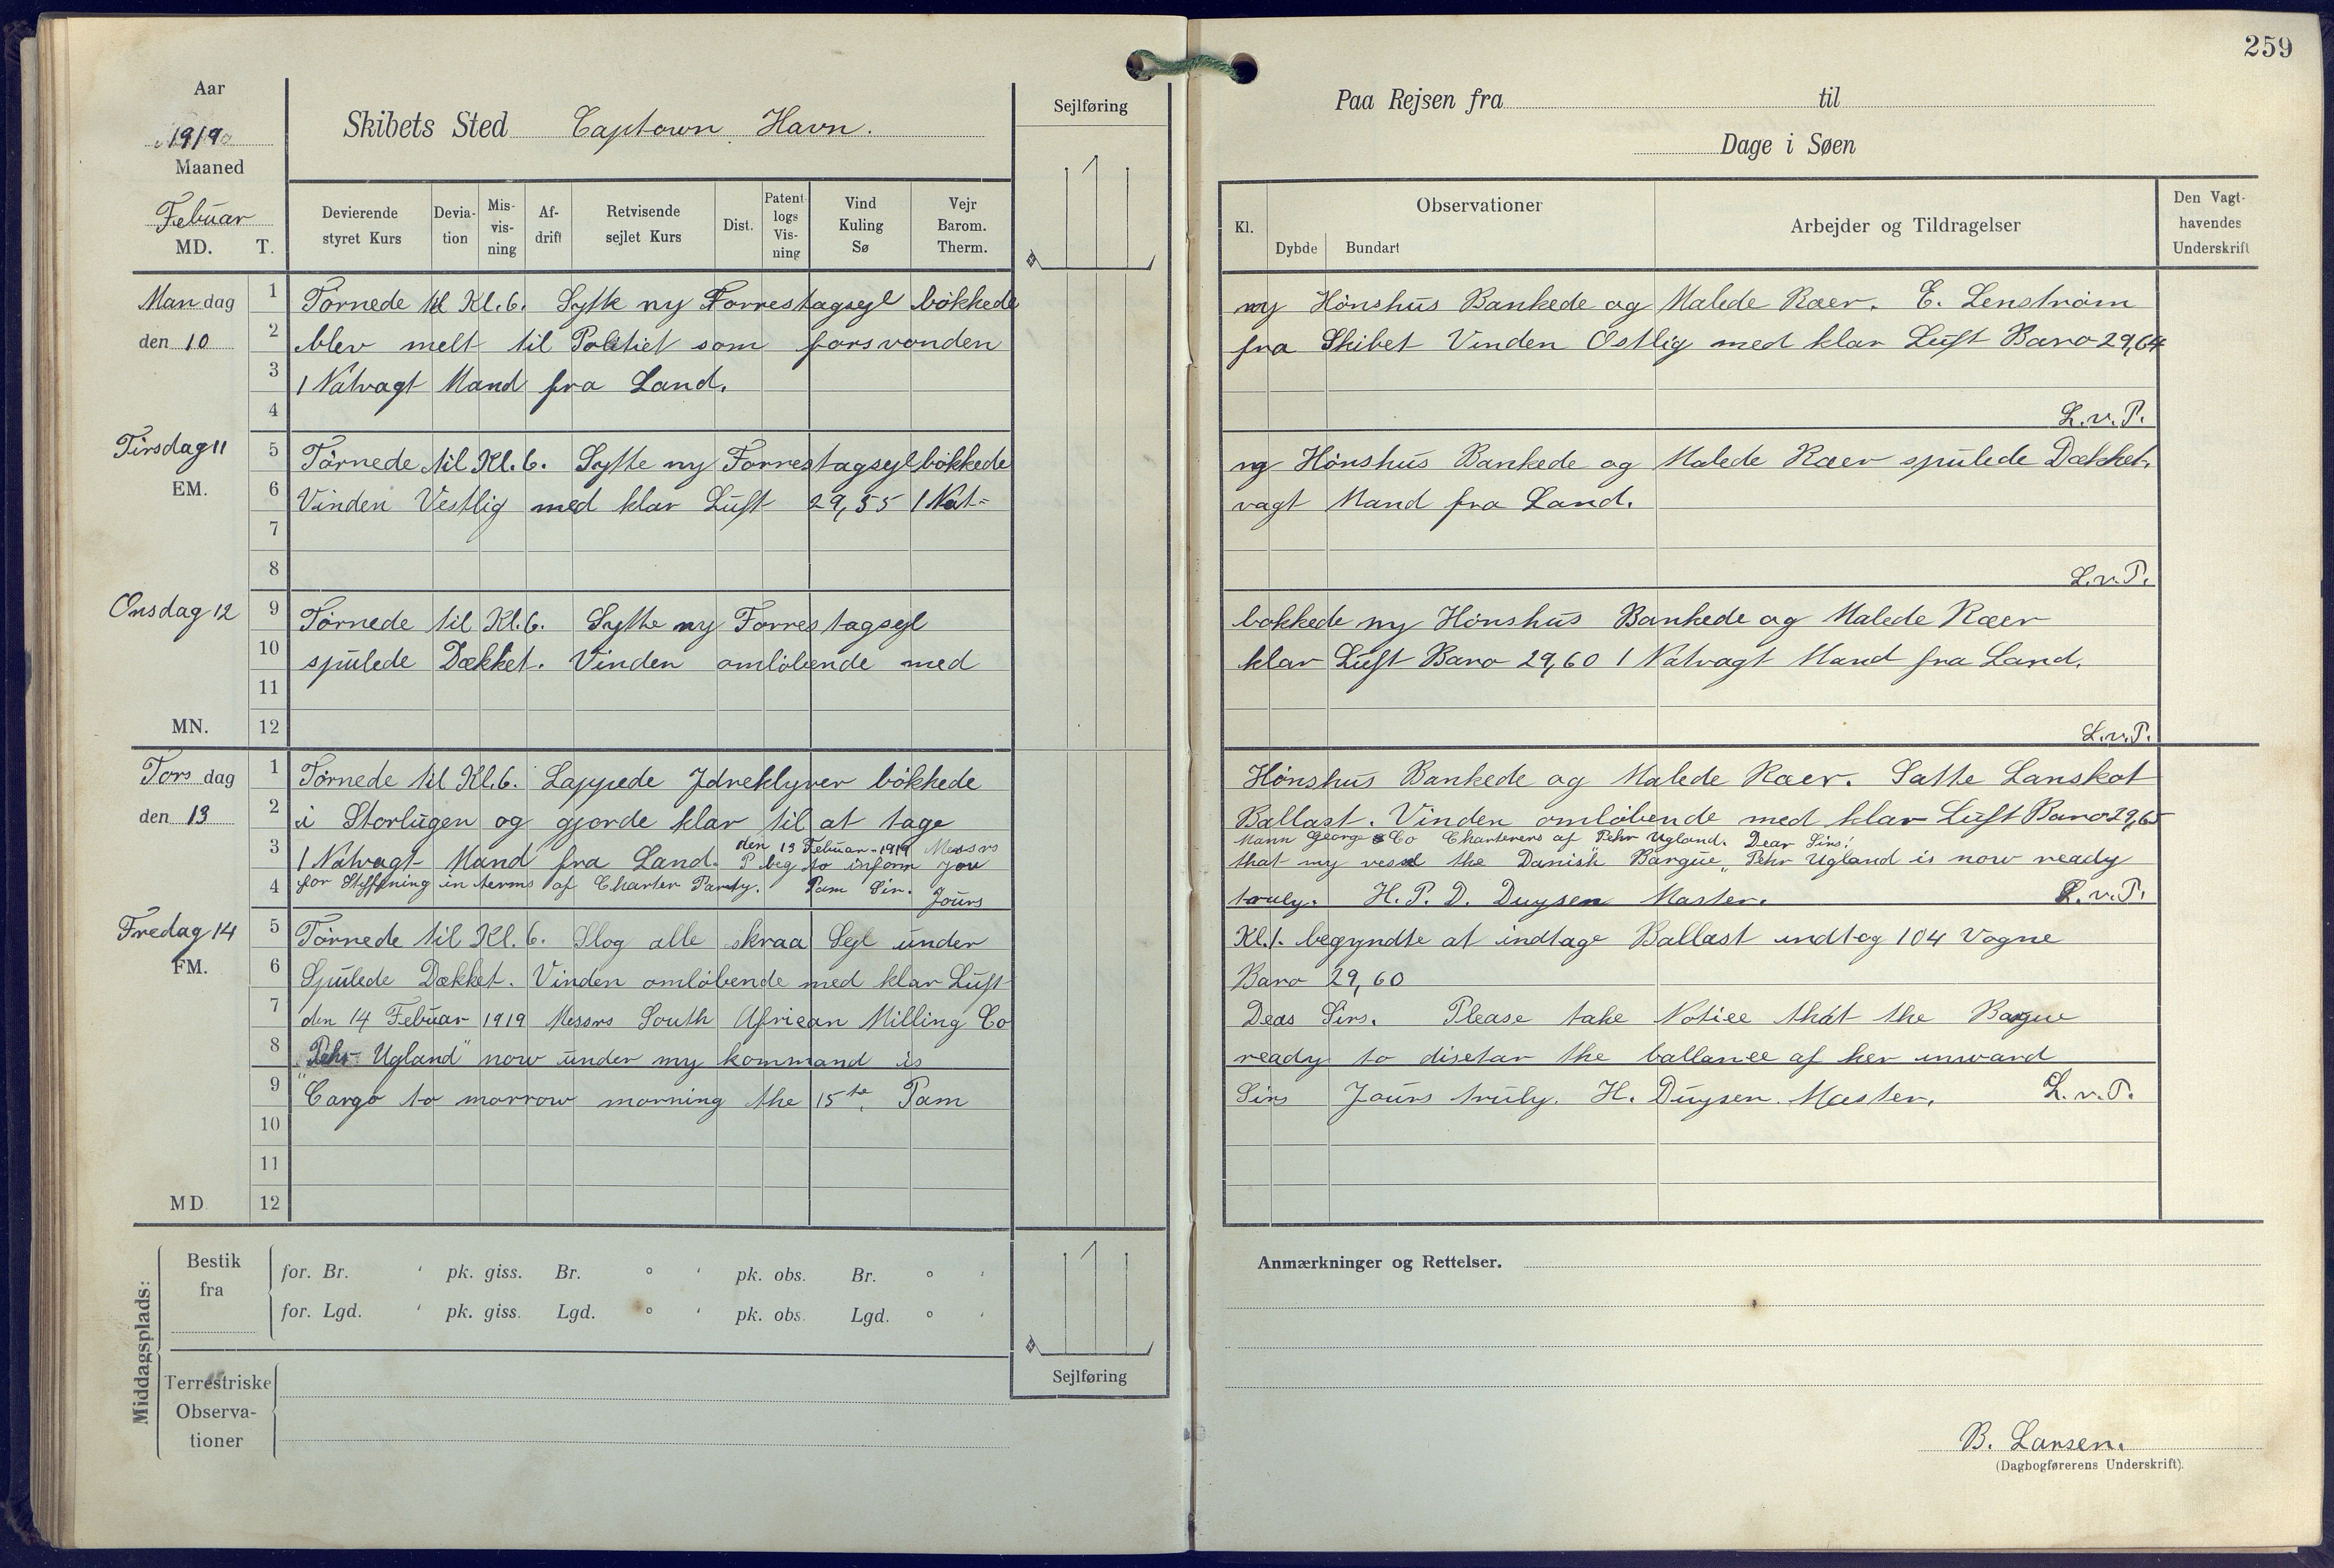 259
Aar
1919
Maaned
Febuar
MD. T.
Skibets Sted Captown Havn.
Sejlføring
Devierende styret Kurs
Devia- tion
Mis- vis- ning
Af- drift
Retvisende sejlet Kurs
Dist.
Patent logs Vis- ning
Vind Kuling Sø
Vejr Barom. Therm.
Paa Rejsen fra til
Dage i Søen
Kl.
Observationer
Dybde Bundart
Arbejder og Tildragelser
Den Vagt- havendes Underskrift
Mandag 1 Tørnede til Kl. 6. Sytte ny Forrestagsejl bökkede ny Hönshus Bankede og Malede Raer. E. Lenström
den 10 2 blev melt til Politiet som forsvonden fra Skibet Vinden Ostlig med klar Luft Baro 29,64
3 1 Natvagt Mand fra Land.
4 L.v.P.
Tirsdag 11 5 Tørnede til Kl. 6. Sytte ny Forrestagsejl bökkede ny Hönshus Bankede og Malede Raer spulede Dækket.
EM. 6 Vinden Vestlig med klar Luft 29,55 1 Nat= vagt Mand fra Land.
7
8 L.v.P.
Onsdag 12 9 Törnede til Kl. 6. Sytte ny Forrestagsejl bokkede ny Hönshus Bankede og Malede Raer
10 spulede Dækket. Vinden omlöbende med klar Luft Baro 29,60 1 Natvagt Mand fra Land.
11
MN. 12 L.v.P.
Torsdag 1 Törnede til Kl. 6. Lappede Jdreklyver bökkede Hönshus Bankede og Malede Raer. Satte Lanskot
den 13 2 i Storlugen og gjorde klar til at tage Ballast. Vinden omlöbende med klar Luft Baro 29,65
den 13 Febuar-1919 Messrs Mann George & Co Charterers af Pehr Ugland. Dear Sirs!
3 1 Natvagt Mand fra Land. P beg to inform you that my vessel the Danish Barque „Pehr Ugland is now ready
4 for Stiffning in terms af Charter Party. Pam Sir. Jours truly. H. P. D. Duysen Master. L.v.P.
Fredag 14 5 Törnede til Kl. 6. Slog alle skraa Sejl under Kl. 1. begyndte at indtage Ballast indtog 104 Vogne
FM. 6 Spulede Dækket. Vinden omlöbende med klar Luft Baro 29,60
7 den 14 Febuar 1919 Messrs South African Milling Co Deas Sirs. Please take Notice that the Barque
8 „Pehr Ugland" now under my kommand is ready to disetar the ballance af her inward
9 Cargo to morrow morning the 15te. Pam Sirs Jours truly. H. Duysen. Master. L.v.P.
10
11
MD 12
Middagsplads:
Bestik fra
for. Br. ' pk. giss. Br. ° ' pk. obs. Br. ° '
for. Lgd. ' pk. giss. Lgd. ° ' pk. obs. Lgd. ° '
Terrestriske Observa- tioner
Sejlføring
Anmærkninger og Rettelser.
B. Larsen.
(Dagbogførerens Underskrift).